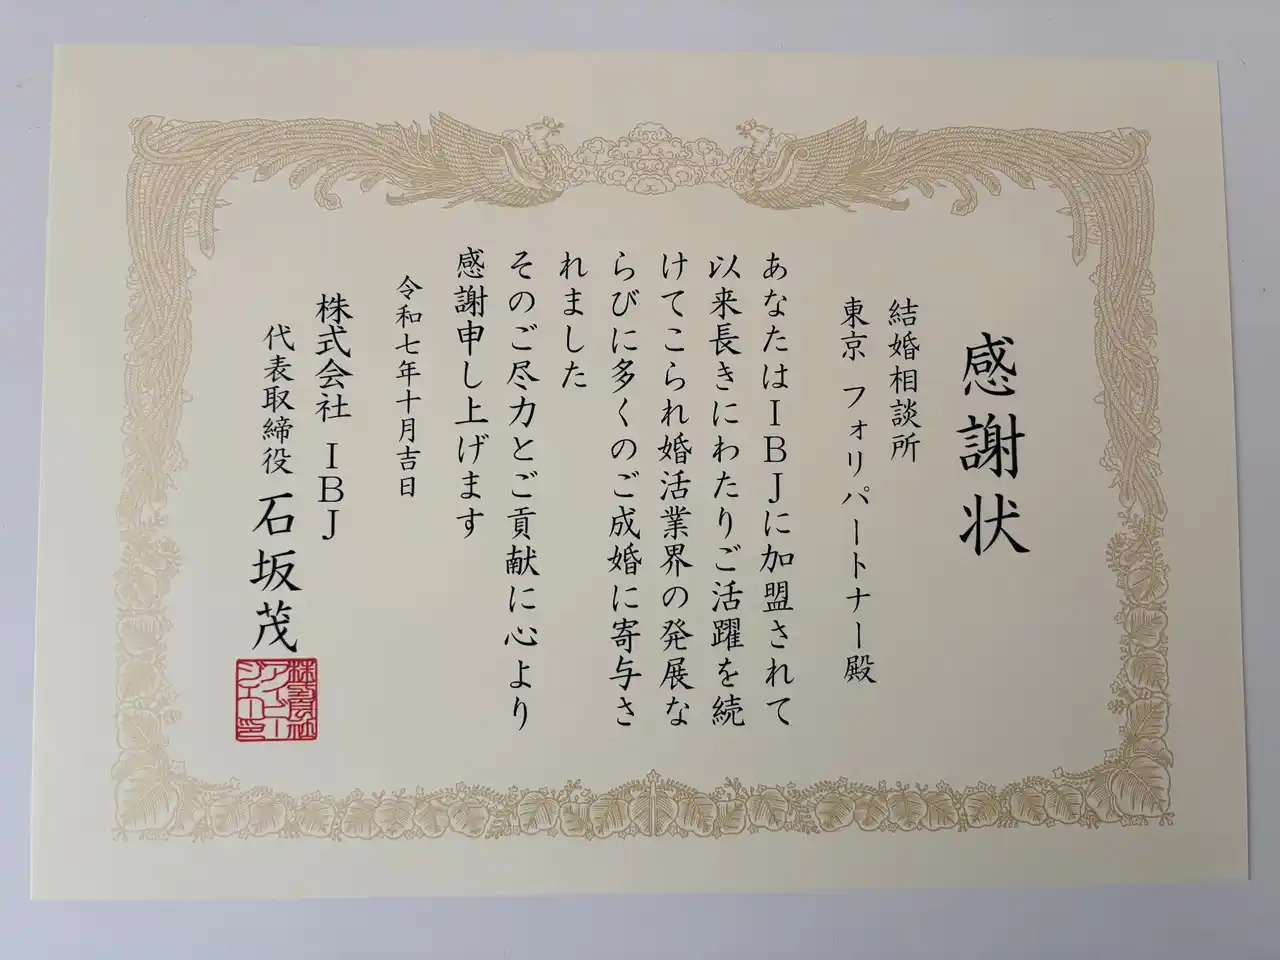 感謝状
結婚相談所
東京 フォリパートナー殿
あなたはIBJに加盟されて
以来長きにわたりご活躍を続
けてこられ婚活業界の発展な
らびに多くのご成婚に寄与さ
れました
そのご尽力とご貢献に心より
感謝申し上げます
令和七年十月吉日
株式会社 IBJ
代表取締役 石坂茂